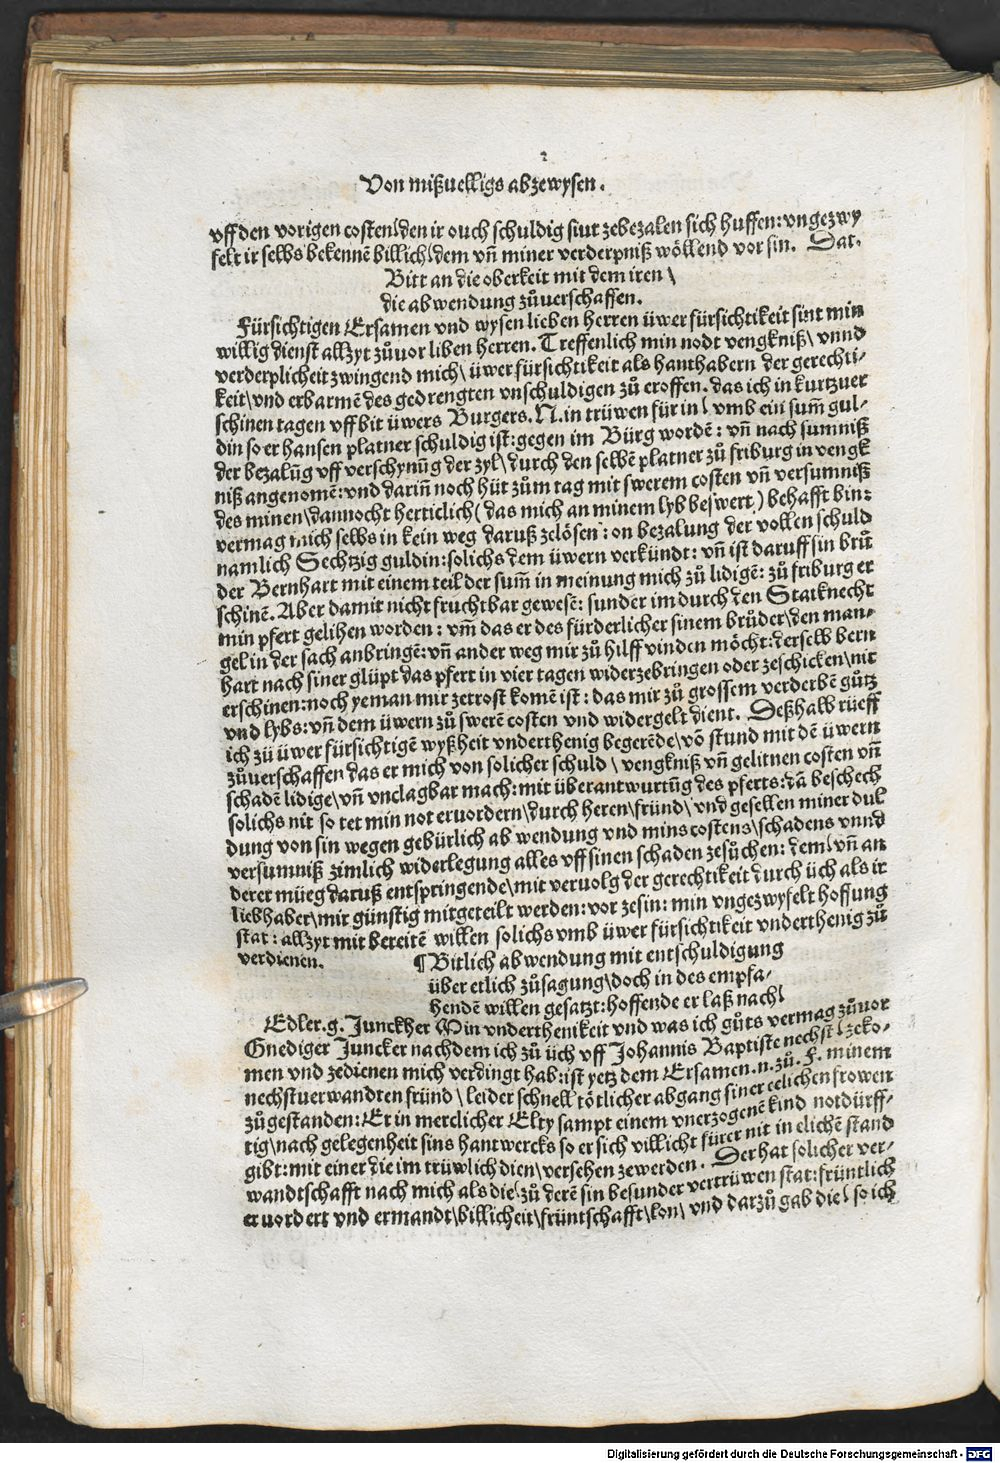 Von mißuelligs abzewysen.
vff den vorigen costen\den ir ouch schuldig sint zebezalen sich huffen: vngezwy
felt ir selbs bekennē billich\dem vn̄ miner verderpniß wöllend vor sin. Dat.
Bitt an die oberkeit mit dem iren\
die abwendung zůuerschaffen.
Fürsichtigen Ersamen vnd wysen lieben herren üwer fürsichtikeit sint min
willig dienst allzyt zůuor liben herren. Treffenlich min nodt vengkniß\ vnnd
verderplicheit zwingend mich\ üwer fürsichtikeit als hanthabern der gerechti-
keit\vnd erbarmē des gedrengten vnschuldigen zů eroffen. das ich in kurtzuer
schinen tagen vff bit üwers Burgers. N. in trüwen für in\ vmb ein sum̄ gul-
din so er hansen platner schuldig ist: gegen im Bürg wordē: vn̄ nach sumniß
der bezalūg vff verschynūg der zyl\durch den selbē platner zů friburg in vengk
niß angenomē: vnd darin̄ noch hüt zům tag mit swerem costen vn̄ versumniß
des minen\dannocht herticlich (das mich an minem lyb beswert) behafft bin:
vermag mich selbs in kein weg daruß zelösen: on bezalung der vollen schuld
namlich Sechtzig guldin: solichs dem üwern verkündt: vn̄ ist daruff sin brů
der Bernhart mit einem teil der sum̄ in meinung mich zů lidigē: zů friburg er
schinē. Aber damit nicht fruchtbar gewesē: sunder im durch den Statknecht
min pfert gelihen worden: vm̄ das er des fürderlicher sinem brůder\den man-
gel in der sach anbringē: vn̄ ander weg mir zů hilff vinden möcht: derselb bern
hart nach siner glüpt das pfert in vier tagen widerzebringen oder zeschicken\nit
erschinen: noch yeman mir zetrost komē ist: das mir zů grossem verderbē gůtz
vnd lybs: vn̄ dem üwern zů swerē costen vnd widergelt dient. Deßhalb rüeff
ich zů üwer fürsichtigē wyßheit vnderthenig begerēde\vō stund mit dē üwern
zůuerschaffen das er mich von solicher schuld\ vengkniß vn̄ gelitnen costen vn̄
schadē lidige\vn̄ vnclagbar mach: mit überantwurtūg des pferts: dā beschech
solichs nit so tet min not eruordern\durch heren\fründ\vnd gesellen miner dul
dung von sin wegen gebürlich abwendung vnd mins costens\schadens vnnd
versumniß zimlich widerlegung alles vff sinen schaden zesůchen: dem\vn̄ an
derer müeg daruß entspringende\mit veruolg der gerechtikeit durch üch als ir
liebhaber\mir günstig mitgeteilt werden: vor zesin: min vngezwyfelt hoffung
stat: allzyt mit bereitē willen solichs vmb üwer fürsichtikeit vnderthenig zů
verdienen.
¶ Bitlich abwendung mit entschuldigung
über etlich zůsagung\doch in des empfa-
hendē willen gesatzt: hoffende er laß nach\
Edler. g. Junckher Min vnderthenikeit vnd was ich gůts vermag zůuor
Gnediger Juncker nachdem ich zů üch vff Johannis Baptiste nechst\zeko-
men vnd zedienen mich verdingt hab: ist yetz dem Ersamen. n. zů. F. minem
nechstuerwandten fründ\ leider schnell tötlicher abgang siner eelichen frowen
zůgestanden: Er in merclicher Elty sampt einem vnerzogenē kind notdürff-
tig\nach gelegenheit sins hantwercks so er sich villicht fürer nit in elichē stand
gibt: mit einer die im trüwlich dien\versehen zewerden. Der hat solicher ver-
wandtschafft nach mich als die\zů derē sin besunder vertrüwen stat: früntlich
eruordert vnd ermandt\billicheit\früntschafft\lon\ vnd darzů gab die\ so ich
Digitalisierung gefördert durch die Deutsche Forschungsgemeinschaft - DFG